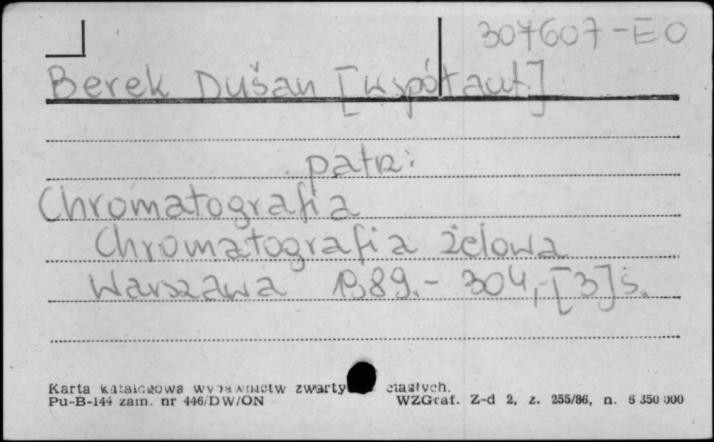 307607-EO
Berek Dušan [współaut.]
patrz:
Chromatografia
Chromatografia żelowa
Warszawa 1989.- 304,-[3]s.
Karta katalogowa wydawnictw zwartych ciągłych.
Pu-B-144 zam. nr 446/DW/ON WZGraf. Z-d 2, z. 255/86, n. 6 350 000